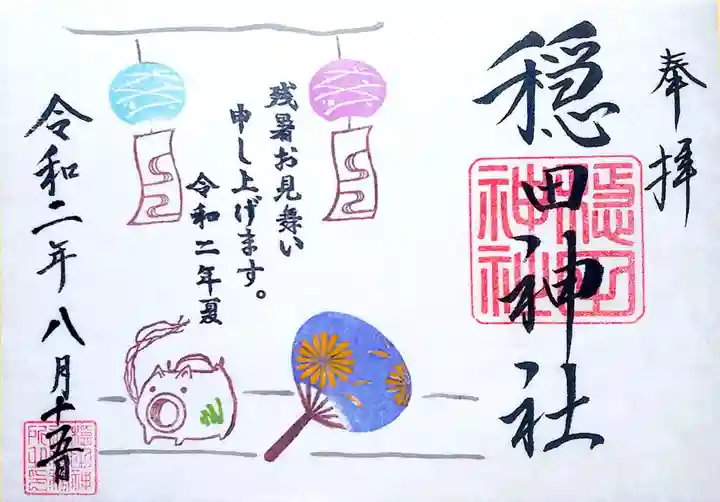 奉拝
穏田神社
穏田神社
残暑お見舞い
申し上げます。
令和二年夏
令和二年八月十五日